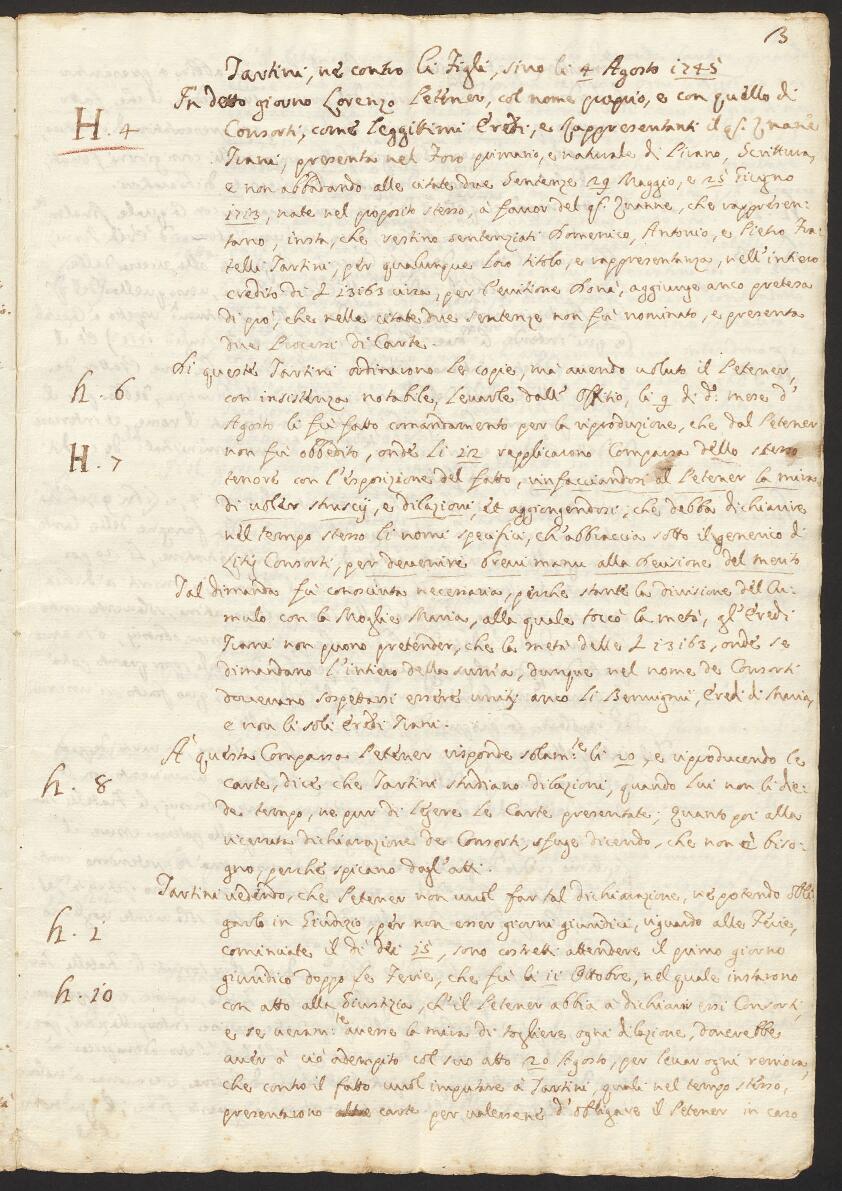 13
Tartini, ne contro li Figli, sino li 4 Agosto 1745
H. 4
In detto giorno Lorenzo Petener, col nome proprio, e con quello di
Consorti, come leggittimi Eredi, e Rappresentanti il q.m Zuane
Trani, presenta nel Foro primario, e naturale di Pirano, Scrittura,
e non abbadando alle citate due Sentenze 29 Maggio, e 25 Giugno
1713, nate nel proposito stesso, à favor del q.m Zuanne, che rappresen:
tano, insta, che restino sentenziati Domenico, Antonio, e Pietro Fra:
telli Tartini, per qualunque loro titolo, e rappresentanza, nell'intiero
credito di L 13163 circa, per l'evitione Donà, aggiunge anco pretesa
di più, che nelle citate due sentenze non fù nominato, e presenta
due Processi di Carte.
h. 6
Di queste Tartini ordinarono le copie, mà avendo voluto il Petener,
con insistenza notabile, levarle dall' Offitio, li 9 di d.o mese d'
Agosto li fù fatto comandamento per la riproduzione, che dal Petener
H. 7
non fù obbedito, onde li 12 rapplicarono Comparsa dello stesso
tenore con l'esposizione del fatto, rinfacciandosi al Petener la mira
di voler strascij, e dilazioni, et aggiongendosi, che debba dichiarire
nel tempo stesso li nomi specifici, ch'abbraccia sotto il generico di
Litij Consorti, per devenire brevi manu alla decisione del merito
Tal dimanda fù conosciuta necessaria, perche stante la divisione del Cu:
mulo con la Moglie Maria, alla quale toccò la metà, gl'Eredi
Trani non puono pretender, che la metà delle L 13163, onde se
dimandano l'intiero della summa, dunque nel nome de Consorti
dovevano sospettarsi essere uniti anco li Bernugnii, Eredi di Maria,
e non li soli Eredi Trani.
A' questa Comparsa Petener risponde solam.te li 20, e riproducendo le
h. 8
carte, dice che Tartini studiano dilazioni, quando lui non li die:
de tempo, ne pur di legere le Carte presentate; quanto poi alla
ricercata dichiarazione de Consorti, sfuge dicendo, che non è biso:
gno, perche spicano dagl'atti.
Tartini vedendo, che Petener non vuol far tal dichiarazione, ne potendo obli
h. 1
garlo in Giudizio, per non esser giorni giuridici, riguardo alle Ferie,
cominciate il dì dei 15, sono costretti attendere il primo giorno
h. 10
giuridico doppo le Ferie, che fù li 11 Ottobre, nel quale instarono
con atto alla Giustizia, ch'il Petener abbia à dichiarir essi Consorti,
e se veram.te avesse la mira di togliere ogni dilazione, doverebbe
aver à ciò adempito col suo atto 20 Agosto, per levar ogni remora,
che contro il fatto vuol imputare à Tartini, quali nel tempo stesso,
presentarono carte per valersene d'obligare il Petener in caso